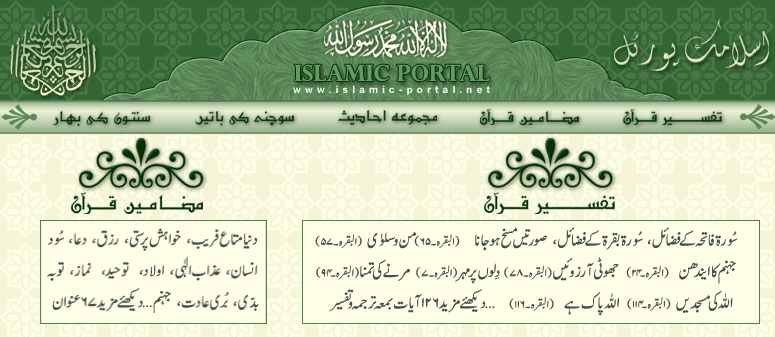 لا اله الا الله محمد رسول الله
ISLAMIC PORTAL
www.islamic-portal.net
اسلامک پورٹل
تفسیر قرآن
مضامین قرآن
مجموعہ احادیث
سوچنے کی باتیں
سنتوں کی بہار
تفسیر قرآن
سُورۃ فاتحہ کے فضائل، سُورۃ بقرۃ کے فضائل، صورتیں مسخ ہو جانا (البقرہ۔۶۵) من وسلوٰی (البقرہ۔۵۷)
جہنم کا ایندھن (البقرہ۔۲۴) جھوٹی آرزوئیں (البقرہ۔۷۸) دِلوں پر مہر (البقرہ۔۷) مرنے کی تمنا (البقرہ۔۹۴)
اللہ کی مسجدیں (البقرہ۔۱۱۴) اللہ پاک ہے (البقرہ۔۱۱۶) ...دیکھئے مزید ۱۲۶ آیات بمعہ ترجمہ و تفسیر
مضامین قرآن
دنیا متاع فریب، خواہش پرستی، رزق، دعا، سُود
انسان، عذاب الٰہی، اولاد، توحید، نماز، توبہ
بدی، بُری عادت، جہنم...دیکھئے مزید ۶۷ عنوان